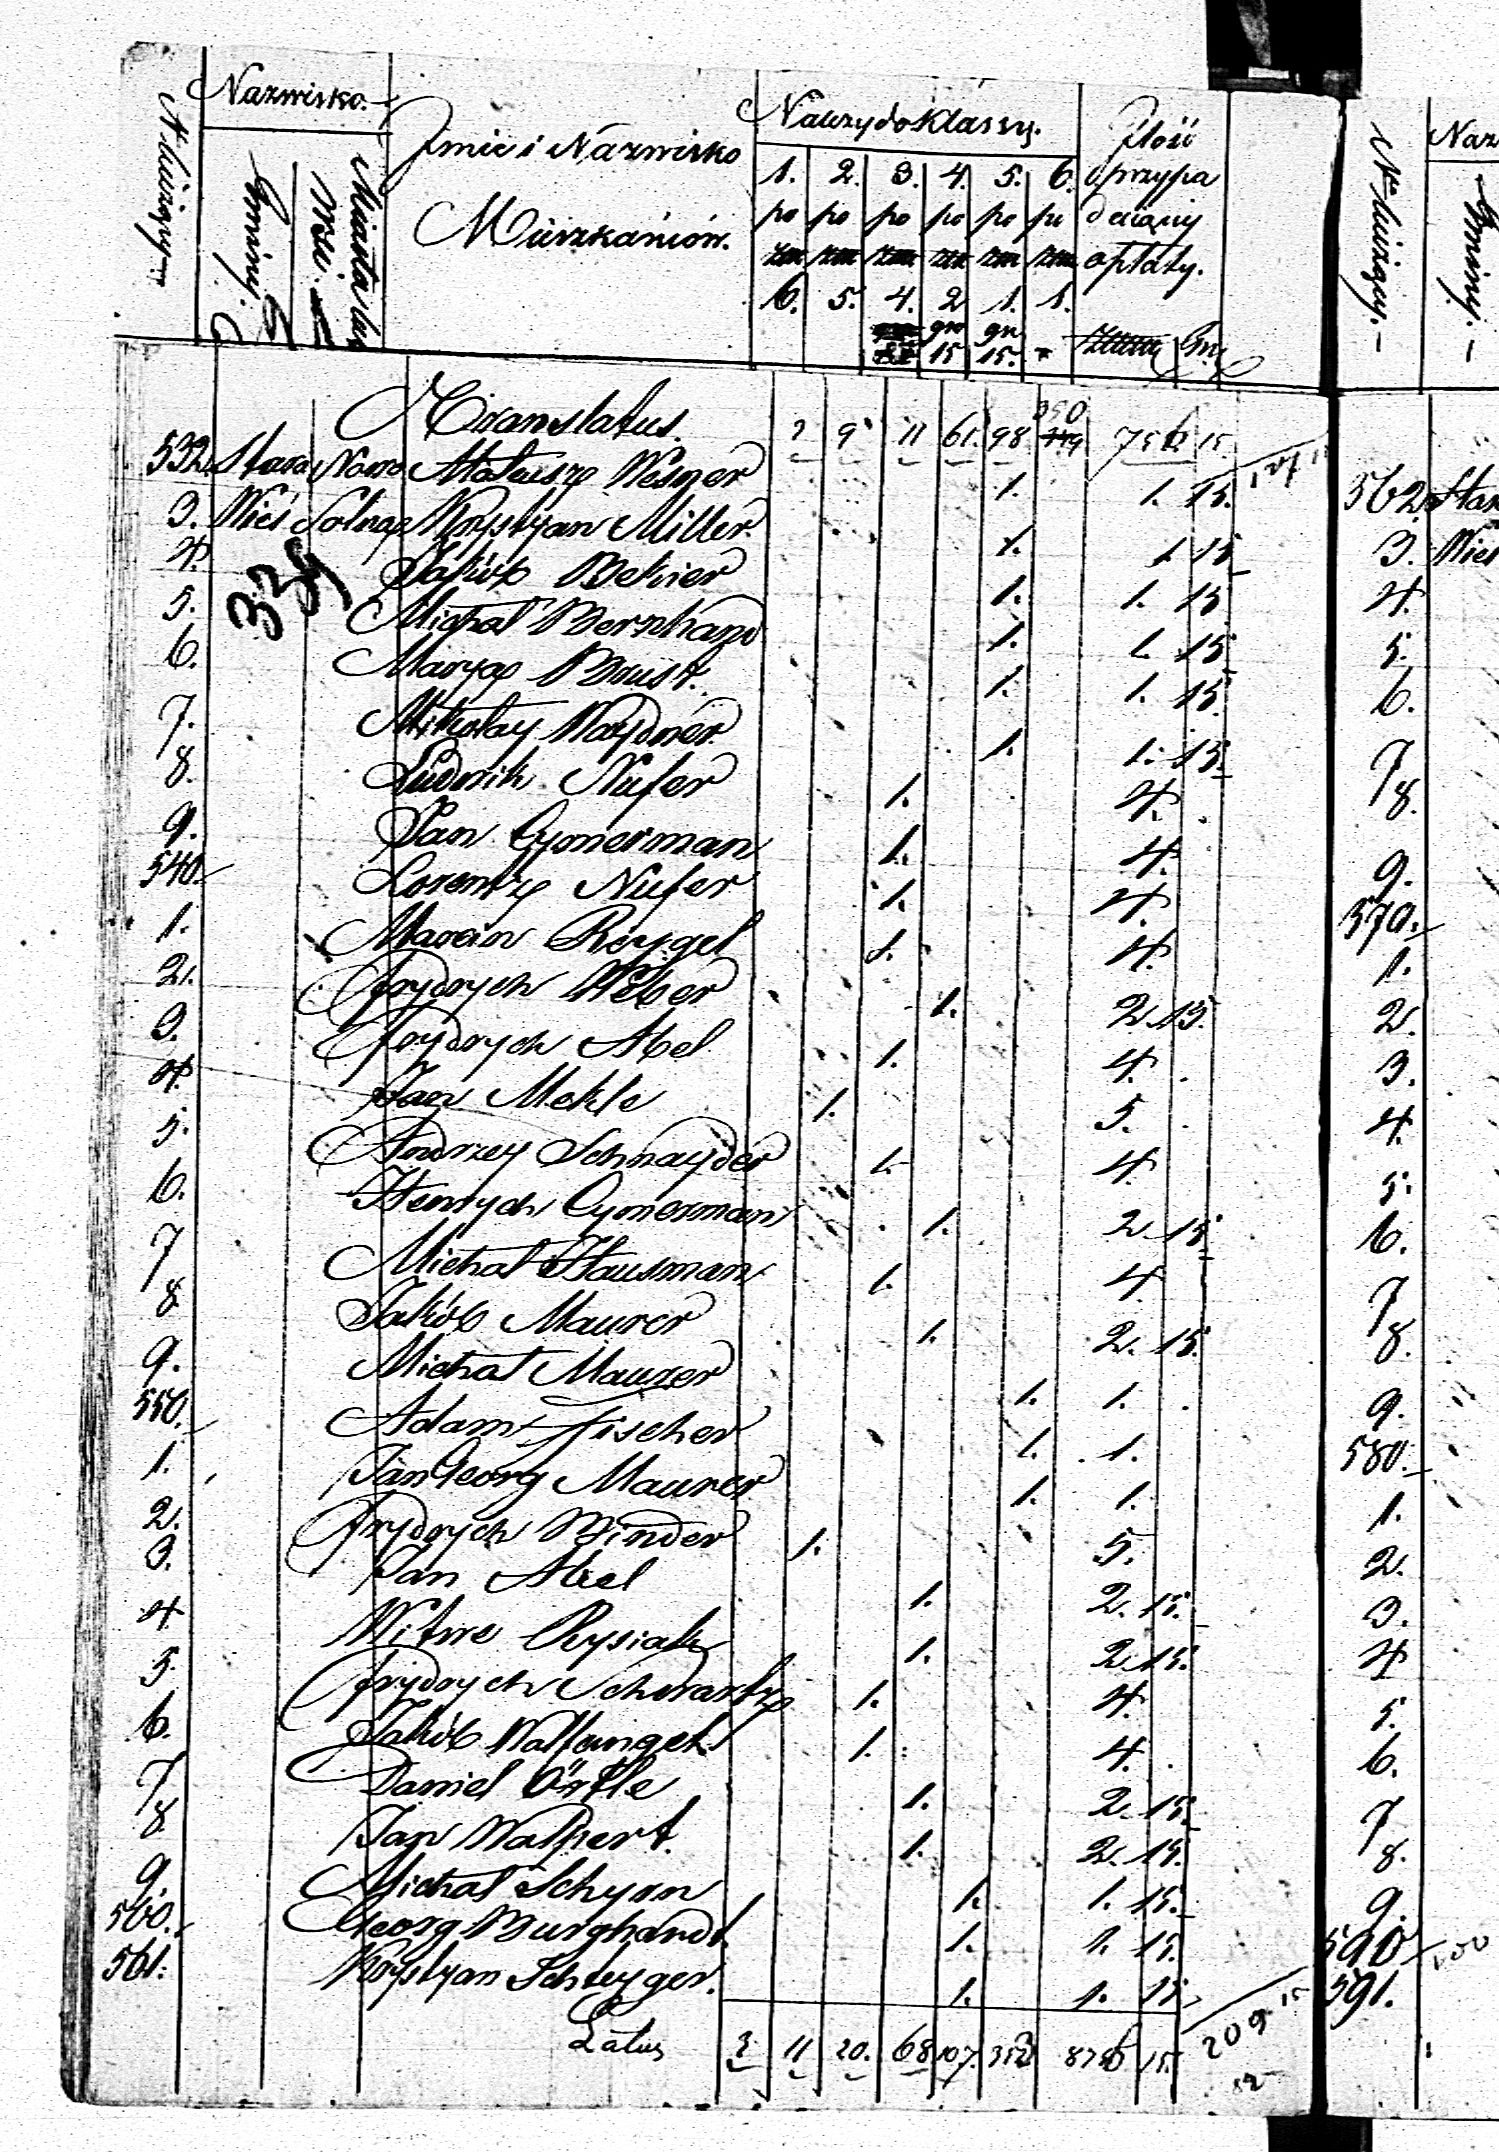 N bieżący
Nazwisko.
Gminy.
Miasta lub
Wsi.
Imie i Nazwisko
Mieszkańców.
Należy do Klassy.
1. 2. 3. 4. 5. 6.
po po po po po po
6. 5. 4. 2 1. 1.
gro gr.
15 15.
Ilość
przypa
daiącey
opłaty.
Gr.
Translatus. 9 11 61. 98 350 15.
532. Stara Nowe Mateusz Wesner 1. 1. 15.
3. Wieś Solna Krystyan Miller. 1. 1 15
4. Jakób Bekier 1. 1. 15
339
5. Michał Bernhard 1. 1. 15
6. Maryą Brust. 1. 1. 15
7. Mikołay Waydner 1. 1. 15.
8. Ludwik Nufer 1. 4.
9. Jan Cymerman 1. 4.
540. Lorentz Nufer 1. 4.
1. Marcin Reygel 1. 4.
2. Frydrych Weber 1. 2. 15.
3. Frydrych Abel 1. 4.
4. Jan Mekle 1. 5.
5. Andrzey Schnayder 1. 4.
6. Henrych Cymerman 1. 2. 15
7 Michał Hausman 1. 4
8 Jakób Maurer 1. 2. 15.
9. Michał Maurer 1. 1.
550. Adam Fischer 1. 1.
1. Jan Georg Maurer 1. 1.
2. Frydrych Binder 1. 5.
3. Jan Abel 1. 2. 15.
4 Witwe Rysiak 1. 2. 15.
5 Frydrych Schwartz 1. 4.
6. Jakób 1. 4.
7 Daniel Örtle 1. 2. 15.
8 Jan Walpert. 1. 2. 15.
9. Michał Schyron 1. 1. 15.
560. Georg Burghardt 1. 1. 15.
561. Krystyan Schleyger. 1. 1. 15
Latus 11 20. 68 107. 352 15.
209 15
N bieżący.
Naz
Gminy.
562. Star
3. Wieś
4.
5.
6.
7
8.
9.
570.
1.
2.
3.
4.
5.
6.
7
8.
9.
580.
1.
2.
3.
4
5.
6.
7
8.
9.
590
591.